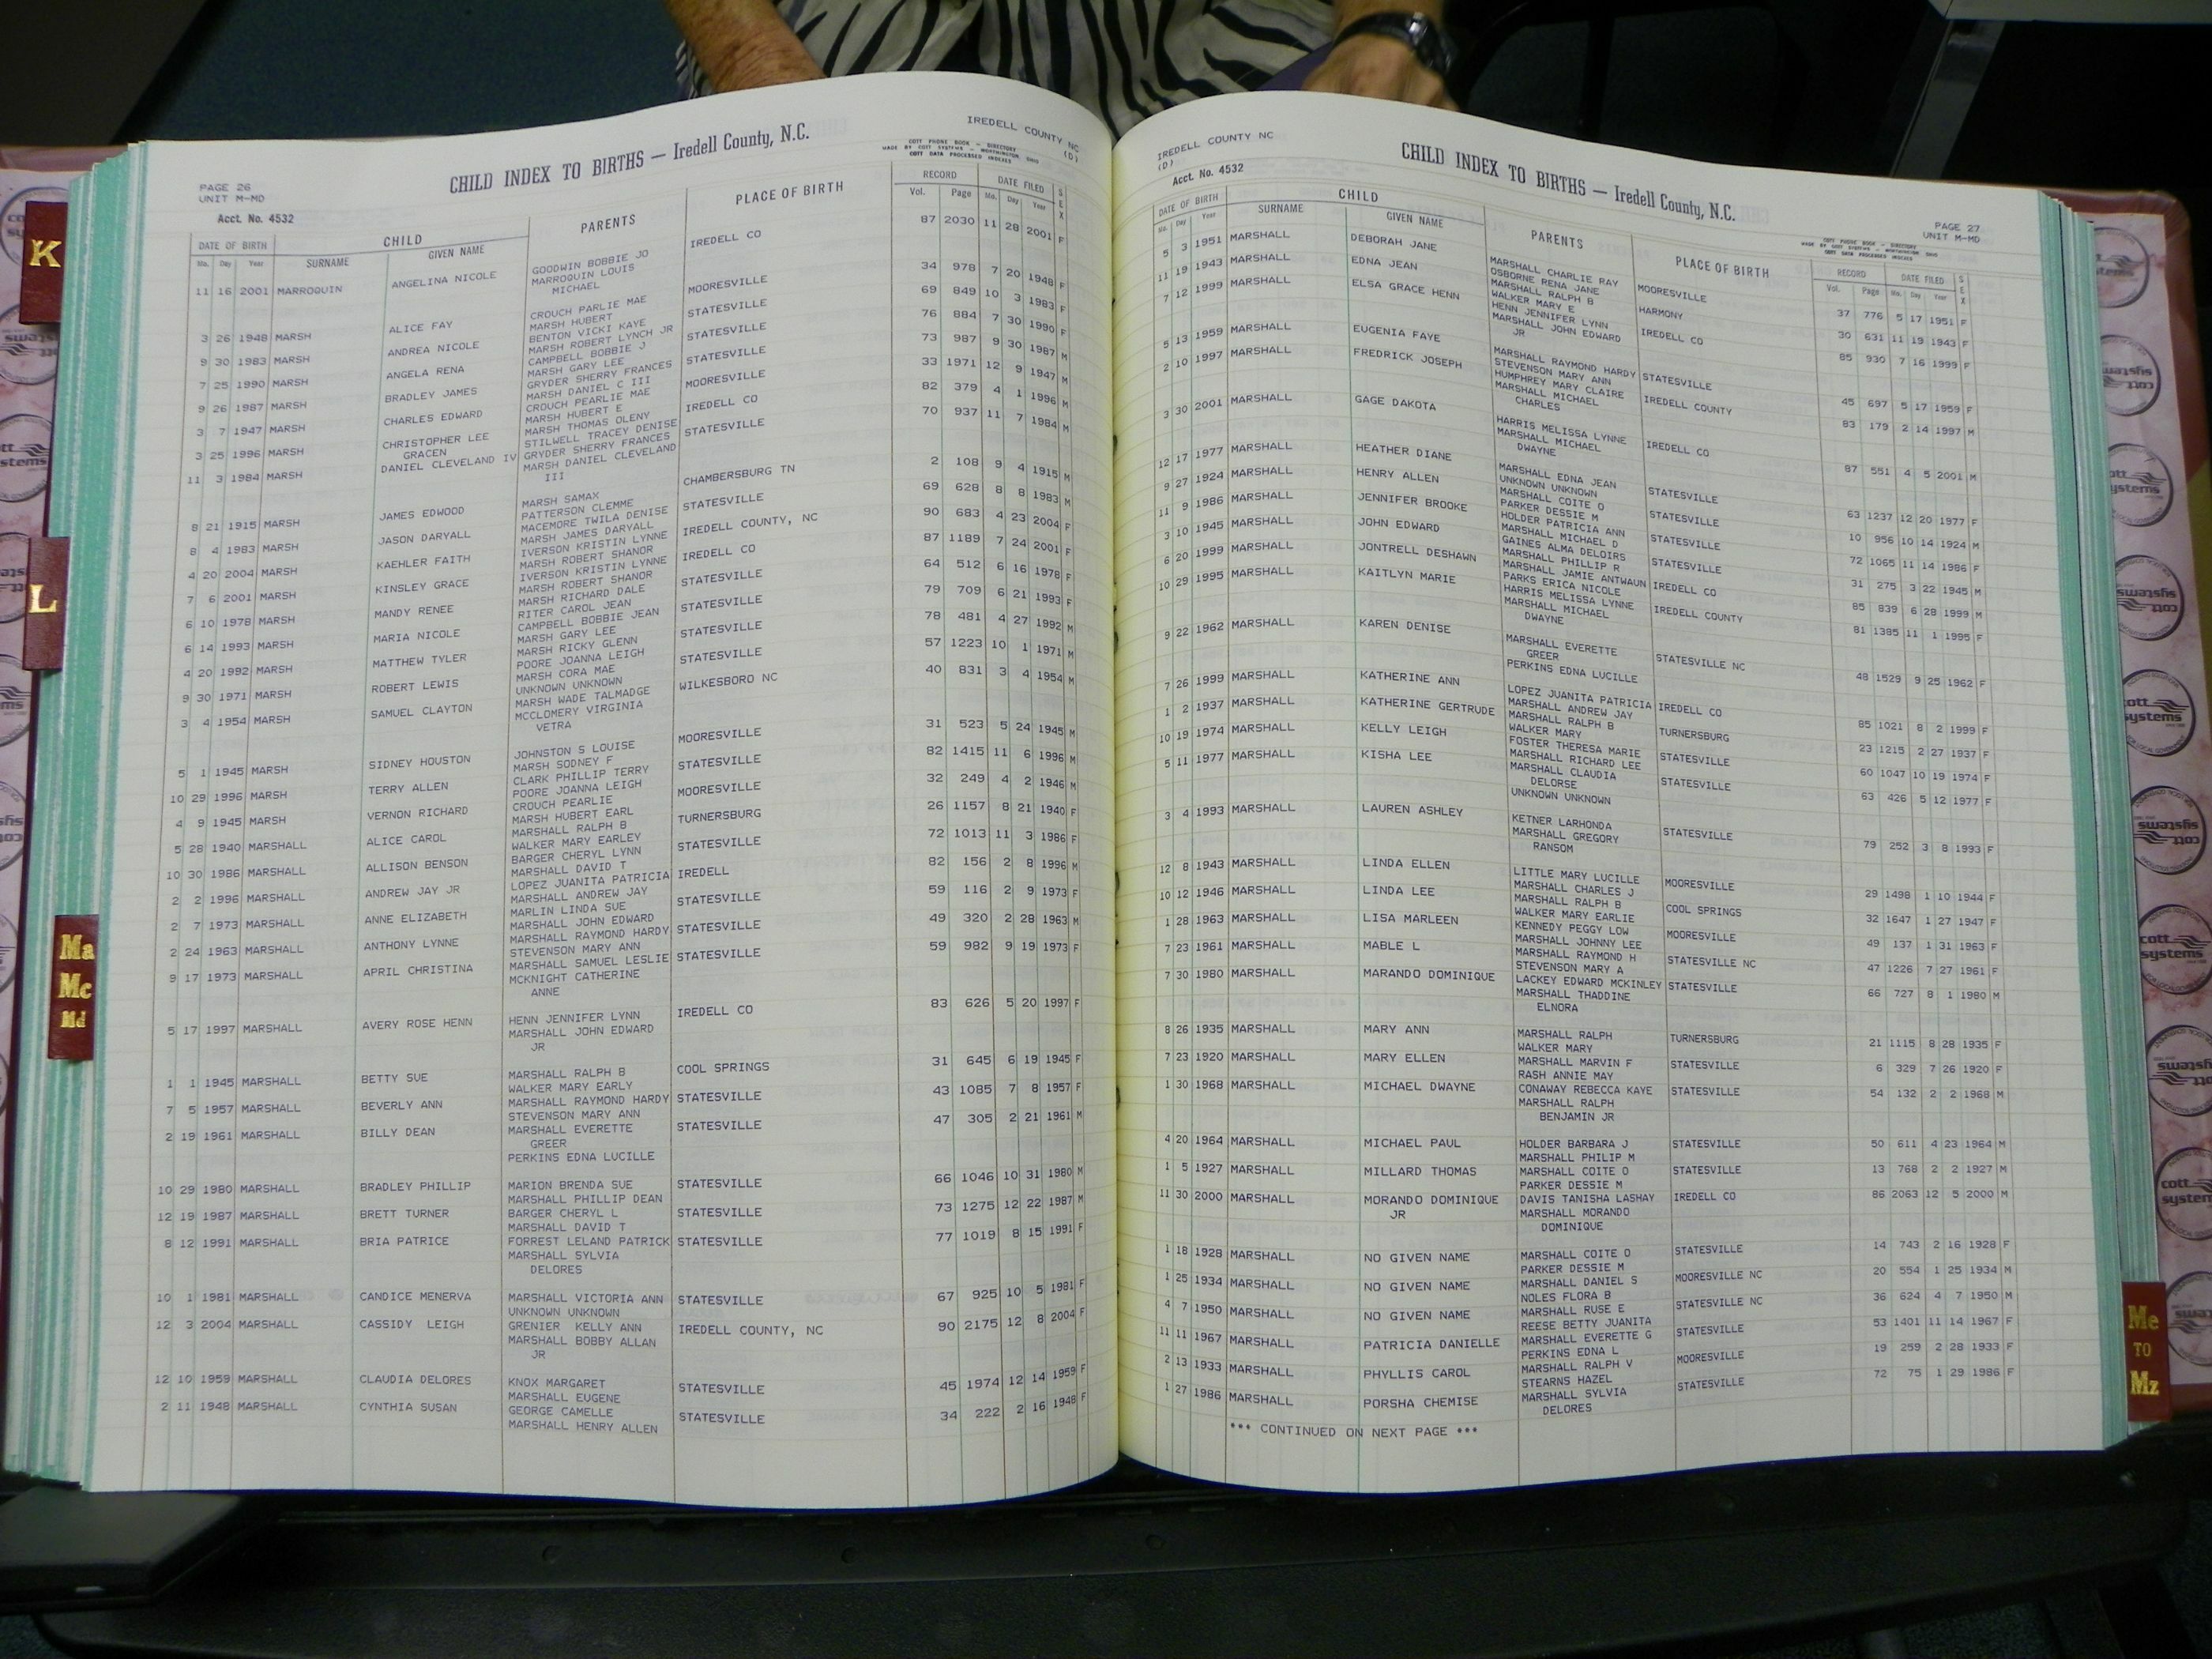 IREDELL COUNTY NC
(D)
CHILD INDEX TO BIRTHS — Iredell County, N.C.
COTT PHONE BOOK — DIRECTORY
MADE BY COTT SYSTEMS — WORTHINGTON, OHIO
COTT DATA PROCESSED INDEXES
PAGE 26
UNIT M-MD
Acct. No. 4532
DATE OF BIRTH CHILD PARENTS PLACE OF BIRTH RECORD DATE FILED SEX
Mo. Day Year SURNAME GIVEN NAME Vol. Page Mo. Day Year
11 16 2001 MARROQUIN ANGELINA NICOLE GOODWIN BOBBIE JO IREDELL CO 87 2030 11 28 2001 F
MARROQUIN LOUIS
MICHAEL
3 26 1948 MARSH ALICE FAY CROUCH PARLIE MAE MOORESVILLE 34 978 7 20 1948 F
MARSH HUBERT
9 30 1983 MARSH ANDREA NICOLE BENTON VICKI KAYE STATESVILLE 69 849 10 3 1983 F
MARSH ROBERT LYNCH JR
7 25 1990 MARSH ANGELA RENA CAMPBELL BOBBIE J STATESVILLE 76 884 7 30 1990 F
MARSH GARY LEE
9 26 1987 MARSH BRADLEY JAMES GRYDER SHERRY FRANCES STATESVILLE 73 987 9 30 1987 M
MARSH DANIEL C III
3 7 1947 MARSH CHARLES EDWARD CROUCH PEARLIE MAE MOORESVILLE 33 1971 12 9 1947 M
MARSH HUBERT E
3 25 1996 MARSH CHRISTOPHER LEE MARSH THOMAS OLENY IREDELL CO 82 379 4 1 1996 M
GRACEN STILWELL TRACEY DENISE
11 3 1984 MARSH DANIEL CLEVELAND IV GRYDER SHERRY FRANCES STATESVILLE 70 937 11 7 1984 M
MARSH DANIEL CLEVELAND
III
8 21 1915 MARSH JAMES EDWOOD MARSH SAMAX CHAMBERSBURG TN 2 108 9 4 1915 M
PATTERSON CLEMME
8 4 1983 MARSH JASON DARYALL MACEMORE TWILA DENISE STATESVILLE 69 628 8 8 1983 M
MARSH JAMES DARYALL
4 20 2004 MARSH KAEHLER FAITH IVERSON KRISTIN LYNNE IREDELL COUNTY, NC 90 683 4 23 2004 F
MARSH ROBERT SHANOR
7 6 2001 MARSH KINSLEY GRACE IVERSON KRISTIN LYNNE IREDELL CO 87 1189 7 24 2001 F
MARSH ROBERT SHANOR
6 10 1978 MARSH MANDY RENEE MARSH RICHARD DALE STATESVILLE 64 512 6 16 1978 F
RITER CAROL JEAN
6 14 1993 MARSH MARIA NICOLE CAMPBELL BOBBIE JEAN STATESVILLE 79 709 6 21 1993 F
MARSH GARY LEE
4 20 1992 MARSH MATTHEW TYLER MARSH RICKY GLENN STATESVILLE 78 481 4 27 1992 M
POORE JOANNA LEIGH
9 30 1971 MARSH ROBERT LEWIS MARSH CORA MAE STATESVILLE 57 1223 10 1 1971 M
UNKNOWN UNKNOWN
3 4 1954 MARSH SAMUEL CLAYTON MARSH WADE TALMADGE WILKESBORO NC 40 831 3 4 1954 M
MCCLOMERY VIRGINIA
VETRA
5 1 1945 MARSH SIDNEY HOUSTON JOHNSTON S LOUISE MOORESVILLE 31 523 5 24 1945 M
MARSH SODNEY F
10 29 1996 MARSH TERRY ALLEN CLARK PHILLIP TERRY STATESVILLE 82 1415 11 6 1996 M
POORE JOANNA LEIGH
4 9 1945 MARSH VERNON RICHARD CROUCH PEARLIE MOORESVILLE 32 249 4 2 1946 M
MARSH HUBERT EARL
5 28 1940 MARSHALL ALICE CAROL MARSHALL RALPH B TURNERSBURG 26 1157 8 21 1940 F
WALKER MARY EARLEY
10 30 1986 MARSHALL ALLISON BENSON BARGER CHERYL LYNN STATESVILLE 72 1013 11 3 1986 F
MARSHALL DAVID T
2 2 1996 MARSHALL ANDREW JAY JR LOPEZ JUANITA PATRICIA IREDELL 82 156 2 8 1996 M
MARSHALL ANDREW JAY
2 7 1973 MARSHALL ANNE ELIZABETH MARLIN LINDA SUE STATESVILLE 59 116 2 9 1973 F
MARSHALL JOHN EDWARD
2 24 1963 MARSHALL ANTHONY LYNNE MARSHALL RAYMOND HARDY STATESVILLE 49 320 2 28 1963 M
STEVENSON MARY ANN
9 17 1973 MARSHALL APRIL CHRISTINA MARSHALL SAMUEL LESLIE STATESVILLE 59 982 9 19 1973 F
MCKNIGHT CATHERINE
ANNE
5 17 1997 MARSHALL AVERY ROSE HENN HENN JENNIFER LYNN IREDELL CO 83 626 5 20 1997 F
MARSHALL JOHN EDWARD
JR
1 1 1945 MARSHALL BETTY SUE MARSHALL RALPH B COOL SPRINGS 31 645 6 19 1945 F
WALKER MARY EARLY
7 5 1957 MARSHALL BEVERLY ANN MARSHALL RAYMOND HARDY STATESVILLE 43 1085 7 8 1957 F
STEVENSON MARY ANN
2 19 1961 MARSHALL BILLY DEAN MARSHALL EVERETTE STATESVILLE 47 305 2 21 1961 M
GREER
PERKINS EDNA LUCILLE
10 29 1980 MARSHALL BRADLEY PHILLIP MARION BRENDA SUE STATESVILLE 66 1046 10 31 1980 M
MARSHALL PHILLIP DEAN
12 19 1987 MARSHALL BRETT TURNER BARGER CHERYL L STATESVILLE 73 1275 12 22 1987 M
MARSHALL DAVID T
8 12 1991 MARSHALL BRIA PATRICE FORREST LELAND PATRICK STATESVILLE 77 1019 8 15 1991 F
MARSHALL SYLVIA
DELORES
10 1 1981 MARSHALL CANDICE MENERVA MARSHALL VICTORIA ANN STATESVILLE 67 925 10 5 1981 F
UNKNOWN UNKNOWN
12 3 2004 MARSHALL CASSIDY LEIGH GRENIER KELLY ANN IREDELL COUNTY, NC 90 2175 12 8 2004 F
MARSHALL BOBBY ALLAN
JR
12 10 1959 MARSHALL CLAUDIA DELORES KNOX MARGARET STATESVILLE 45 1974 12 14 1959 F
MARSHALL EUGENE
2 11 1948 MARSHALL CYNTHIA SUSAN GEORGE CAMELLE STATESVILLE 34 222 2 16 1948 F
MARSHALL HENRY ALLEN
IREDELL COUNTY NC
(D)
Acct. No. 4532
CHILD INDEX TO BIRTHS — Iredell County, N.C.
PAGE 27
UNIT M-MD
COTT PHONE BOOK — DIRECTORY
MADE BY COTT SYSTEMS — WORTHINGTON, OHIO
COTT DATA PROCESSED INDEXES
DATE OF BIRTH CHILD PARENTS PLACE OF BIRTH RECORD DATE FILED SEX
Mo. Day Year SURNAME GIVEN NAME Vol. Page Mo. Day Year
5 3 1951 MARSHALL DEBORAH JANE MARSHALL CHARLIE RAY MOORESVILLE 37 776 5 17 1951 F
OSBORNE RENA JANE
11 19 1943 MARSHALL EDNA JEAN MARSHALL RALPH B HARMONY 30 631 11 19 1943 F
WALKER MARY E
7 12 1999 MARSHALL ELSA GRACE HENN HENN JENNIFER LYNN IREDELL CO 85 930 7 16 1999 F
MARSHALL JOHN EDWARD
JR
5 13 1959 MARSHALL EUGENIA FAYE MARSHALL RAYMOND HARDY STATESVILLE 45 697 5 17 1959 F
STEVENSON MARY ANN
2 10 1997 MARSHALL FREDRICK JOSEPH HUMPHREY MARY CLAIRE IREDELL COUNTY 83 179 2 14 1997 M
MARSHALL MICHAEL
CHARLES
3 30 2001 MARSHALL GAGE DAKOTA HARRIS MELISSA LYNNE IREDELL CO 87 551 4 5 2001 M
MARSHALL MICHAEL
DWAYNE
12 17 1977 MARSHALL HEATHER DIANE MARSHALL EDNA JEAN STATESVILLE 63 1237 12 20 1977 F
UNKNOWN UNKNOWN
9 27 1924 MARSHALL HENRY ALLEN MARSHALL COITE O STATESVILLE 10 956 10 14 1924 M
PARKER DESSIE M
11 9 1986 MARSHALL JENNIFER BROOKE HOLDER PATRICIA ANN STATESVILLE 72 1065 11 14 1986 F
MARSHALL MICHAEL D
3 10 1945 MARSHALL JOHN EDWARD GAINES ALMA DELOIRS STATESVILLE 31 275 3 22 1945 M
MARSHALL PHILLIP R
6 20 1999 MARSHALL JONTRELL DESHAWN MARSHALL JAMIE ANTWAUN IREDELL CO 85 839 6 28 1999 M
PARKS ERICA NICOLE
10 29 1995 MARSHALL KAITLYN MARIE HARRIS MELISSA LYNNE IREDELL COUNTY 81 1385 11 1 1995 F
MARSHALL MICHAEL
DWAYNE
9 22 1962 MARSHALL KAREN DENISE MARSHALL EVERETTE STATESVILLE NC 48 1529 9 25 1962 F
GREER
PERKINS EDNA LUCILLE
7 26 1999 MARSHALL KATHERINE ANN LOPEZ JUANITA PATRICIA IREDELL CO 85 1021 8 2 1999 F
MARSHALL ANDREW JAY
1 2 1937 MARSHALL KATHERINE GERTRUDE MARSHALL RALPH B TURNERSBURG 23 1215 2 27 1937 F
WALKER MARY
10 19 1974 MARSHALL KELLY LEIGH FOSTER THERESA MARIE STATESVILLE 60 1047 10 19 1974 F
MARSHALL RICHARD LEE
5 11 1977 MARSHALL KISHA LEE MARSHALL CLAUDIA STATESVILLE 63 426 5 12 1977 F
DELORSE
UNKNOWN UNKNOWN
3 4 1993 MARSHALL LAUREN ASHLEY KETNER LARHONDA STATESVILLE 79 252 3 8 1993 F
MARSHALL GREGORY
RANSOM
12 8 1943 MARSHALL LINDA ELLEN LITTLE MARY LUCILLE MOORESVILLE 29 1498 1 10 1944 F
MARSHALL CHARLES J
10 12 1946 MARSHALL LINDA LEE MARSHALL RALPH B COOL SPRINGS 32 1647 1 27 1947 F
WALKER MARY EARLIE
1 28 1963 MARSHALL LISA MARLEEN KENNEDY PEGGY LOW MOORESVILLE 49 137 1 31 1963 F
MARSHALL JOHNNY LEE
7 23 1961 MARSHALL MABLE L MARSHALL RAYMOND H STATESVILLE NC 47 1226 7 27 1961 F
STEVENSON MARY A
7 30 1980 MARSHALL MARANDO DOMINIQUE LACKEY EDWARD MCKINLEY STATESVILLE 66 727 8 1 1980 M
MARSHALL THADDINE
ELNORA
8 26 1935 MARSHALL MARY ANN MARSHALL RALPH TURNERSBURG 21 1115 8 28 1935 F
WALKER MARY
7 23 1920 MARSHALL MARY ELLEN MARSHALL MARVIN F STATESVILLE 6 329 7 26 1920 F
RASH ANNIE MAY
1 30 1968 MARSHALL MICHAEL DWAYNE CONAWAY REBECCA KAYE STATESVILLE 54 132 2 2 1968 M
MARSHALL RALPH
BENJAMIN JR
4 20 1964 MARSHALL MICHAEL PAUL HOLDER BARBARA J STATESVILLE 50 611 4 23 1964 M
MARSHALL PHILIP M
1 5 1927 MARSHALL MILLARD THOMAS MARSHALL COITE O STATESVILLE 13 768 2 2 1927 M
PARKER DESSIE M
11 30 2000 MARSHALL MORANDO DOMINIQUE DAVIS TANISHA LASHAY IREDELL CO 86 2063 12 5 2000 M
JR MARSHALL MORANDO
DOMINIQUE
1 18 1928 MARSHALL NO GIVEN NAME MARSHALL COITE O STATESVILLE 14 743 2 16 1928 F
PARKER DESSIE M
1 25 1934 MARSHALL NO GIVEN NAME MARSHALL DANIEL S MOORESVILLE NC 20 554 1 25 1934 M
NOLES FLORA B
4 7 1950 MARSHALL NO GIVEN NAME MARSHALL RUSE E STATESVILLE NC 36 624 4 7 1950 M
REESE BETTY JUANITA
11 11 1967 MARSHALL PATRICIA DANIELLE MARSHALL EVERETTE G STATESVILLE 53 1401 11 14 1967 F
PERKINS EDNA L
2 13 1933 MARSHALL PHYLLIS CAROL MARSHALL RALPH V MOORESVILLE 19 259 2 28 1933 F
STEARNS HAZEL
1 27 1986 MARSHALL PORSHA CHEMISE MARSHALL SYLVIA STATESVILLE 72 75 1 29 1986 F
DELORES
*** CONTINUED ON NEXT PAGE ***
K
L
Ma
Mc
Md
Me
TO
Mz
cott
systems